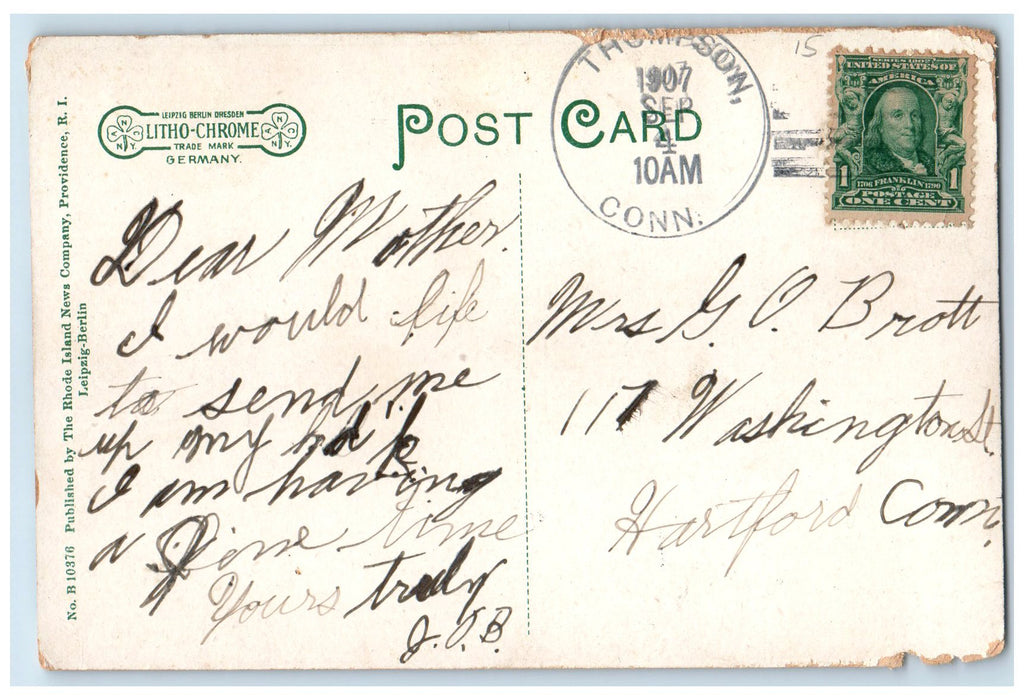 No. B 10376 Published by The Rhode Island News Company, Providence, R. I.
Leipzig-Berlin
LEIPZIG BERLIN DRESDEN
LITHO-CHROME
TRADE MARK
GERMANY.
N.Y.
N.Y.
POST CARD
THOMPSON,
1907
SEP
4
10AM
CONN.
15
SERIES 1902
UNITED STATES OF
AMERICA
1 1
1706 FRANKLIN 1790
POSTAGE
ONE CENT
Dear Mother.
I would life
to send me
up my hd'k
I am having
a fine time
Yours truly
J.O.B.
Mrs G. O. Brott
117 Washington St.
Hartford Conn.